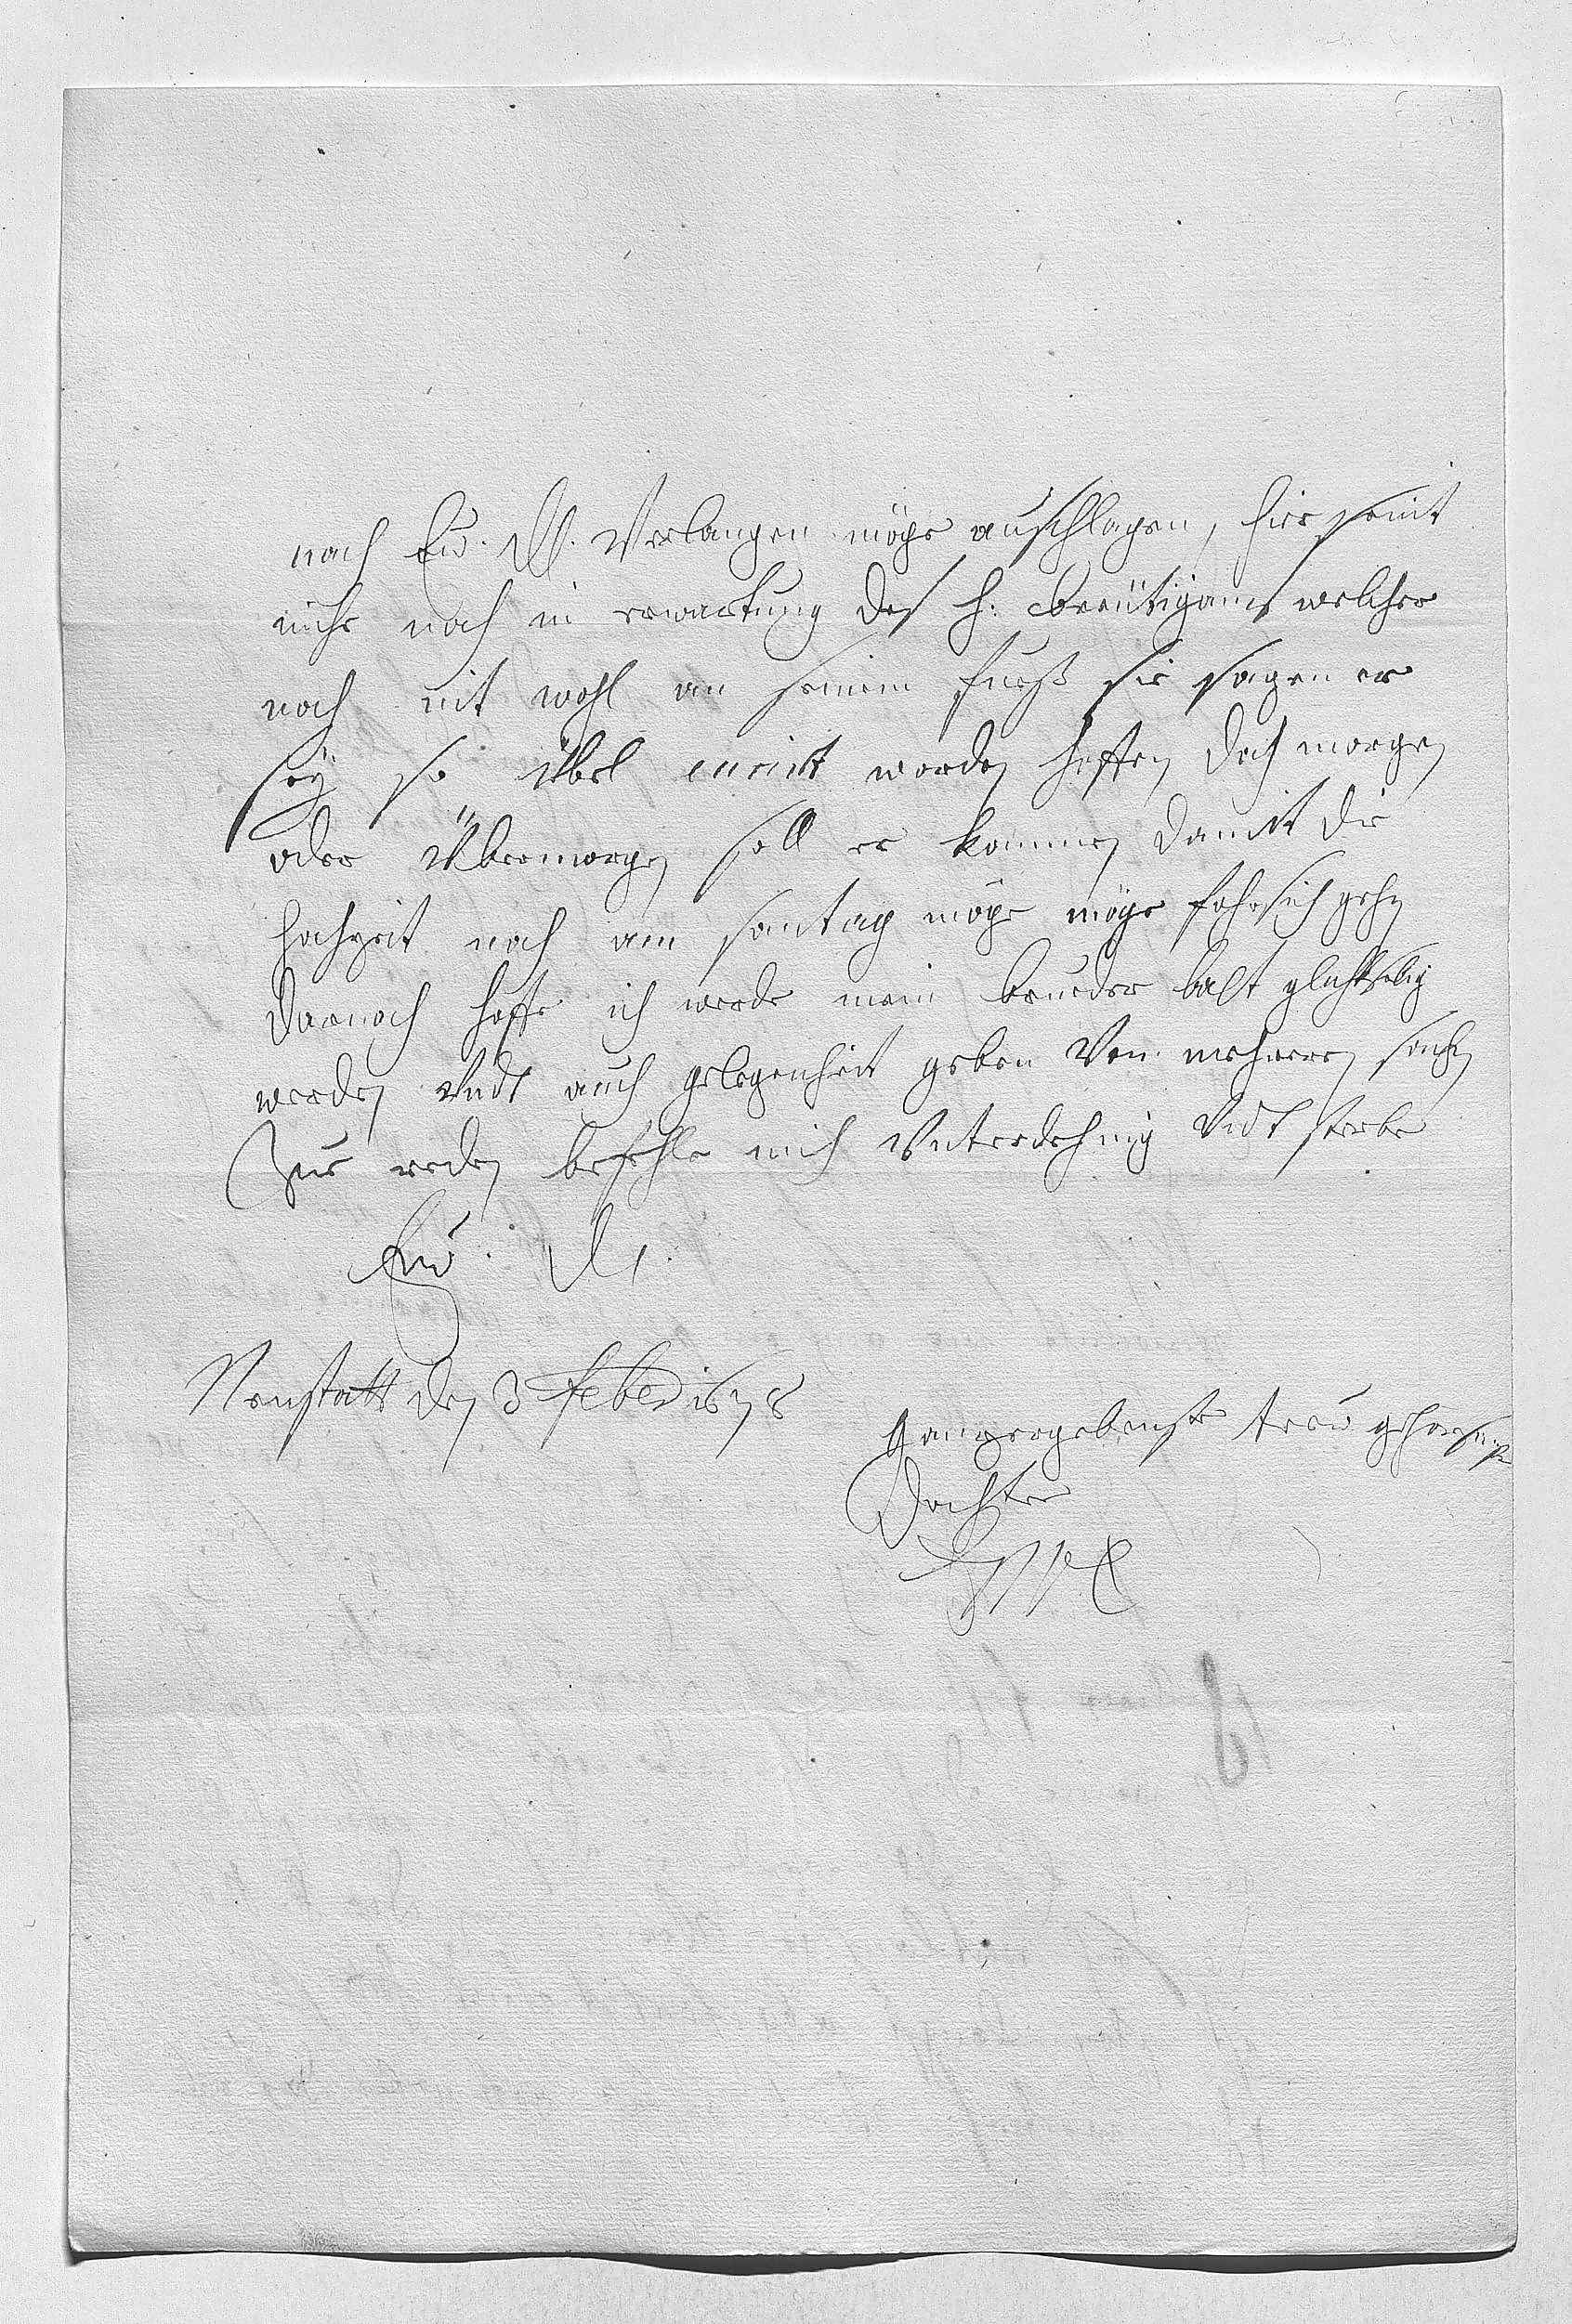 nach Ew. M. Verlangen möge auschlagen, hier seint
mihr noch in erwartung des H. Breütigams welcher
noch nit wohl an seinem fueß sie sagen er
sey so übel worden hoffen doch morgen
oder übermorgen soll er kommen damit die
hochzeit noch am sontag möge möge fohrsich gehn
darnach hoffe ich werde mein brueder balt gluckselig
werden undt auch gelegenheit geben von mehreren sachen
zue reden befehle mich unterdehnig undt sterbe
Ew. M.
Neustatt den 3 feber 1678
ganz ergebenste treü gehorsamste
Dochter
18